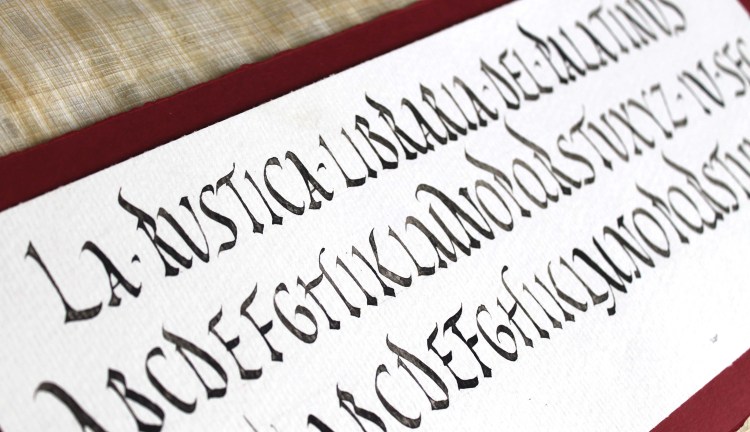 LA·RUSTICA·LIBRARIA·DEL·PALATINUS
ABCDEFGHIJKLMNOPQRSTUXYZ·IV·SEC
ABCDEFGHIJKLMNOPQRSTU